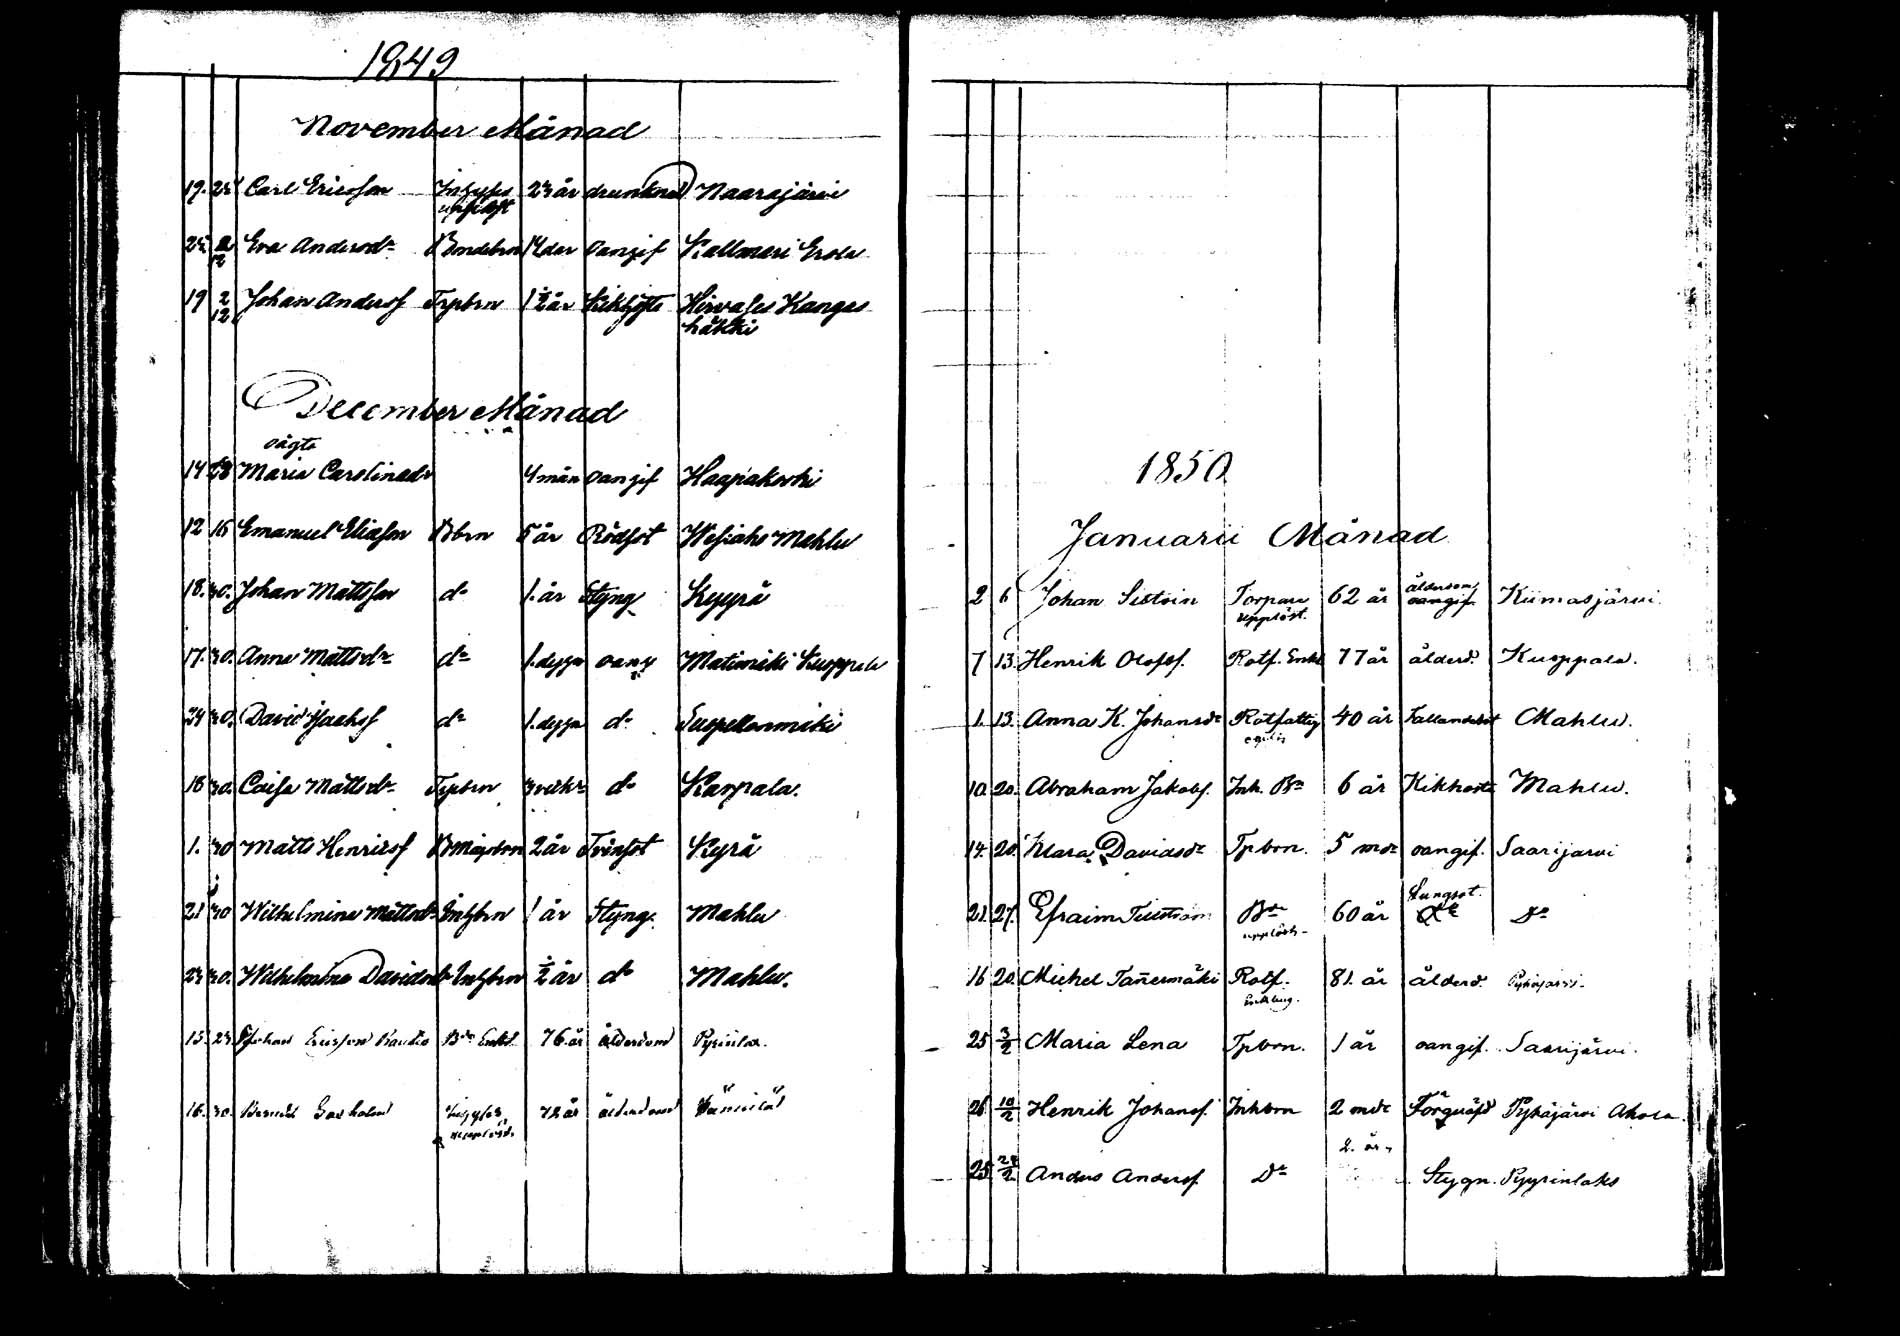 1849
November Månad
19. 25 Carl Ericsson Inhyses 23 år drunknad Naarajärvi
25 2/12 Eva Andersdr Bondebrn 14 dar oangif Kallmari Erola
19 2/12 Johan Andersf Trpbrn 1 1/2 år Kikhosta Hirvases Kangas
häkki
December Månad
oägta
14 23 Maria Carolinadr 4 mån oangif Haapakoski
12 16 Emanuel Eliasson Bbrn 5 år Rödsot Mahlu
18. 30. Johan Mattsson do 1. år Styng Kyyrä
17. 30. Anna Mattsdr do 1. dygn oang Matimäki Kuoppala
24 30. David Jacobsf do 1. dygn do
18 30. Caisa Mattsdr Trpbrn 3 veckr do Karpala.
1. 30 Matts Henricsf 2 år Tvinsot Kyrä
21 30 Wilhelmina Mattsdr Inhbrn 1 år Styng. Mahlu
23 30. Wilhelmina Davidsdr Inhbrn 1/2 år do Mahlu.
15. 23. Johan Ericsson Rautio Bde Enkl 76 år ålderdom
16. 30. 72 år ålderdom
1850
Januarii Månad
2 6 Johan Sistoin Torpare 62 år ålderdom Kiimasjärvi.
upplöst. oangif.
7 13. Henrik Olofsf. Rotf. Enkl 77 år ålderd. Kuoppala.
1. 13. Anna K. Johansdr Rotfattig 40 år Fallandesot Mahlu.
ogift
10. 20. Abraham Jakobsf. Inh. Bn 6 år Kikhosta Mahlu.
14. 20. Klara Davidsdr Tpbrn. 5 mdr oangif. Saarijärvi
Lungsot.
21. 27. Efraim 60 år Do
16 20. Michel Tanermäki Rotf. 81. år ålderd. Pyhäjärvi.
Enkling.
25 3/2 Maria Lena Tpbrn. 1 år oangif. Saarijärvi.
26 10/2 Henrik Johansf. Inhbrn 2 mdr Pyhäjärvi Ahola.
2. år.
25 24/2 Anders Andersf. Do Stygn. Pyyrinlaks